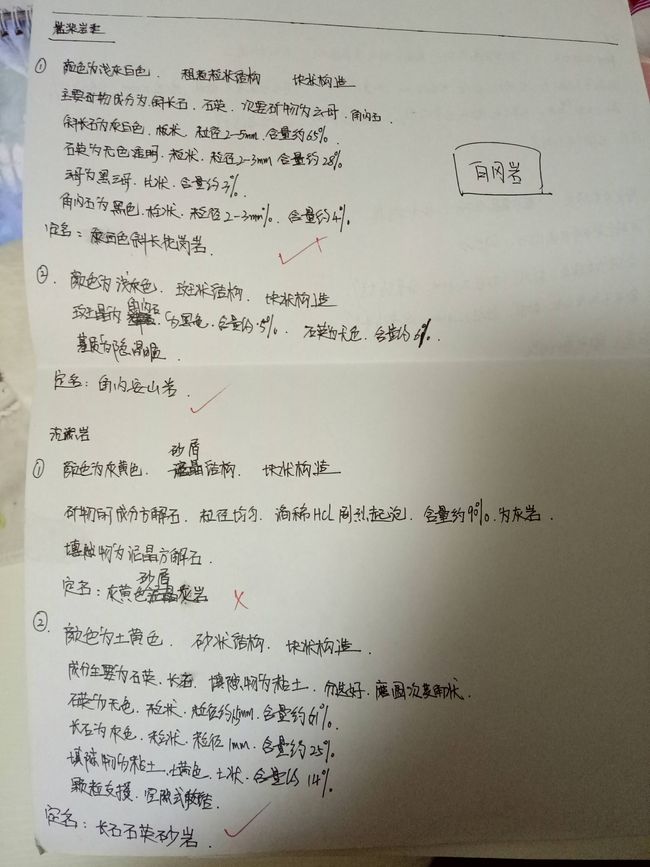 岩浆岩类
① 颜色为浅灰白色. 粗粒粒状结构 块状构造
主要矿物成分为斜长石. 石英. 次要矿物为云母. 角闪石
斜长石为灰白色. 板状. 粒径2-5mm. 含量约65%.
石英为无色透明. 粒状. 粒径2-3mm 含量约28%
云母为黑云母. 片状. 含量约3%
角闪石为黑色. 粒状. 粒径2-3mm%. 含量约4%.
定名: 色斜长花岗岩.
白冈岩
② 颜色为浅灰色. 斑状结构. 块状构造
斑晶为角闪石. 为黑色. 含量约5%. 石英为无色. 含量约6%.
基质为隐晶质.
定名: 角闪安山岩.
沉积岩
① 颜色为灰黄色. 砂屑结构. 块状构造
矿物的成分方解石. 粒径均匀. 滴稀HCl剧烈起泡. 含量约90%. 为灰岩.
填隙物为泥晶方解石.
定名: 灰黄色砂屑灰岩
② 颜色为土黄色. 砂状结构. 块状构造.
成分主要为石英. 长石. 填隙物为粘土. 分选好. 磨圆次棱角状.
石英为无色. 粒状. 粒径约1.5mm. 含量约61%.
长石为灰色. 粒状. 粒径1mm. 含量约25%.
填隙物为粘土. 土黄色. 土状. 含量约14%.
颗粒支撑. 空隙式胶结.
定名: 长石石英砂岩.